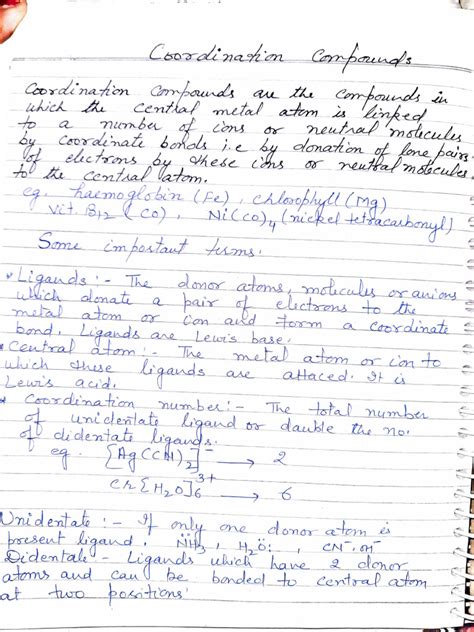 Coordination Compounds
Coordination compounds are the compounds in
which the central metal atom is linked
to a number of ions or neutral molecules
by coordinate bonds i.e by donation of lone pairs
of electrons by these ions or neutral molecules
to the central atom.
eg. haemoglobin (Fe), chlorophyll (Mg)
vit. B12 (CO), Ni(CO)4 (nickel tetracarbonyl)
Some important terms.
Ligands :- The donor atoms, molecules or anions
which donate a pair of electrons to the
metal atom or ion and form a coordinate
bond. Ligands are Lewis base.
Central atom :- The metal atom or ion to
which these ligands are attaced. It is
Lewis acid.
Coordination number :- The total number
of unidentate ligand or dauble the no.
of didentate ligands.
eg. [Ag(CN)2]- → 2
Cr[H2O]6 3+ → 6
Unidentate :- If only one donor atom is
present ligand. NH3, H2O:, CN-, OH-
Didentate - Ligands which have 2 donor
atoms and can be bonded to central atom
at two positions